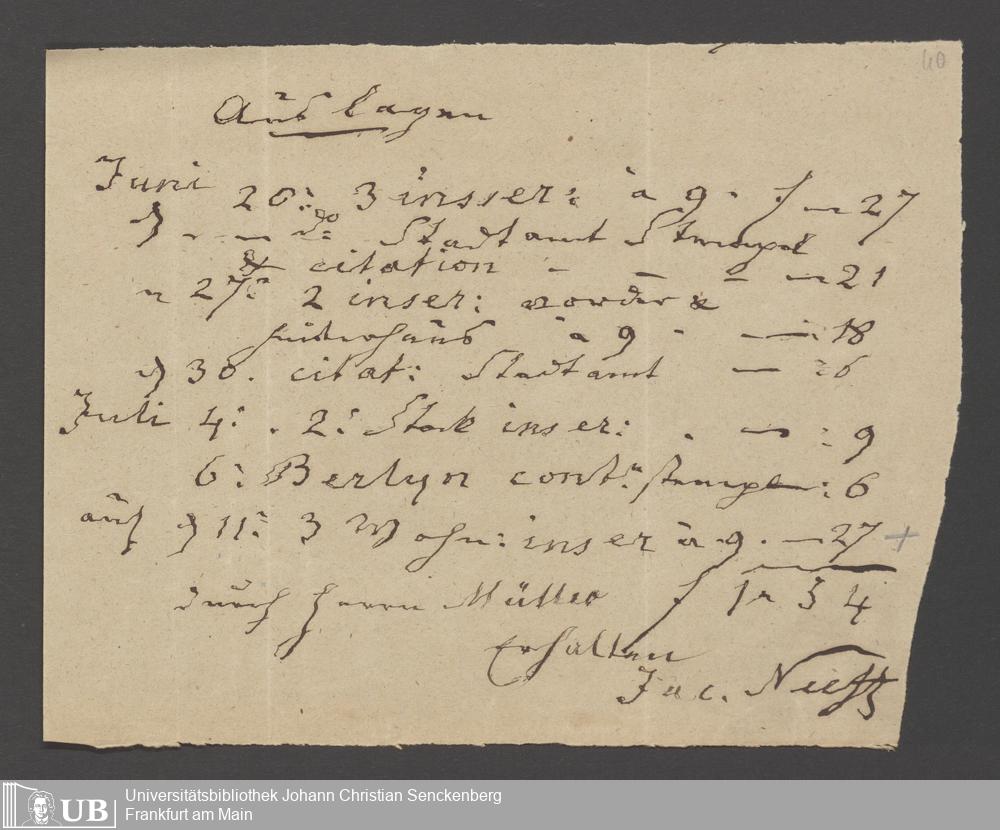 40
Auslagen
Juni 20: 3 insser: à 9 . f — 27
do Stadtamt Stempel
& citation — — — 21
27: 2 inser: vorder &
hinterhaus à 9 . — 18
30. citat: Stadtamt — : 6
Juli 4: . 2: Stock inser: . — : 9
6: Berlyn cont: stempel : 6
auch 11: 3 Wohn: inser à 9 . — 27 +
durch Herrn Müller f 1 " 54
Erhalten
Jac.
UB
Universitätsbibliothek Johann Christian Senckenberg
Frankfurt am Main